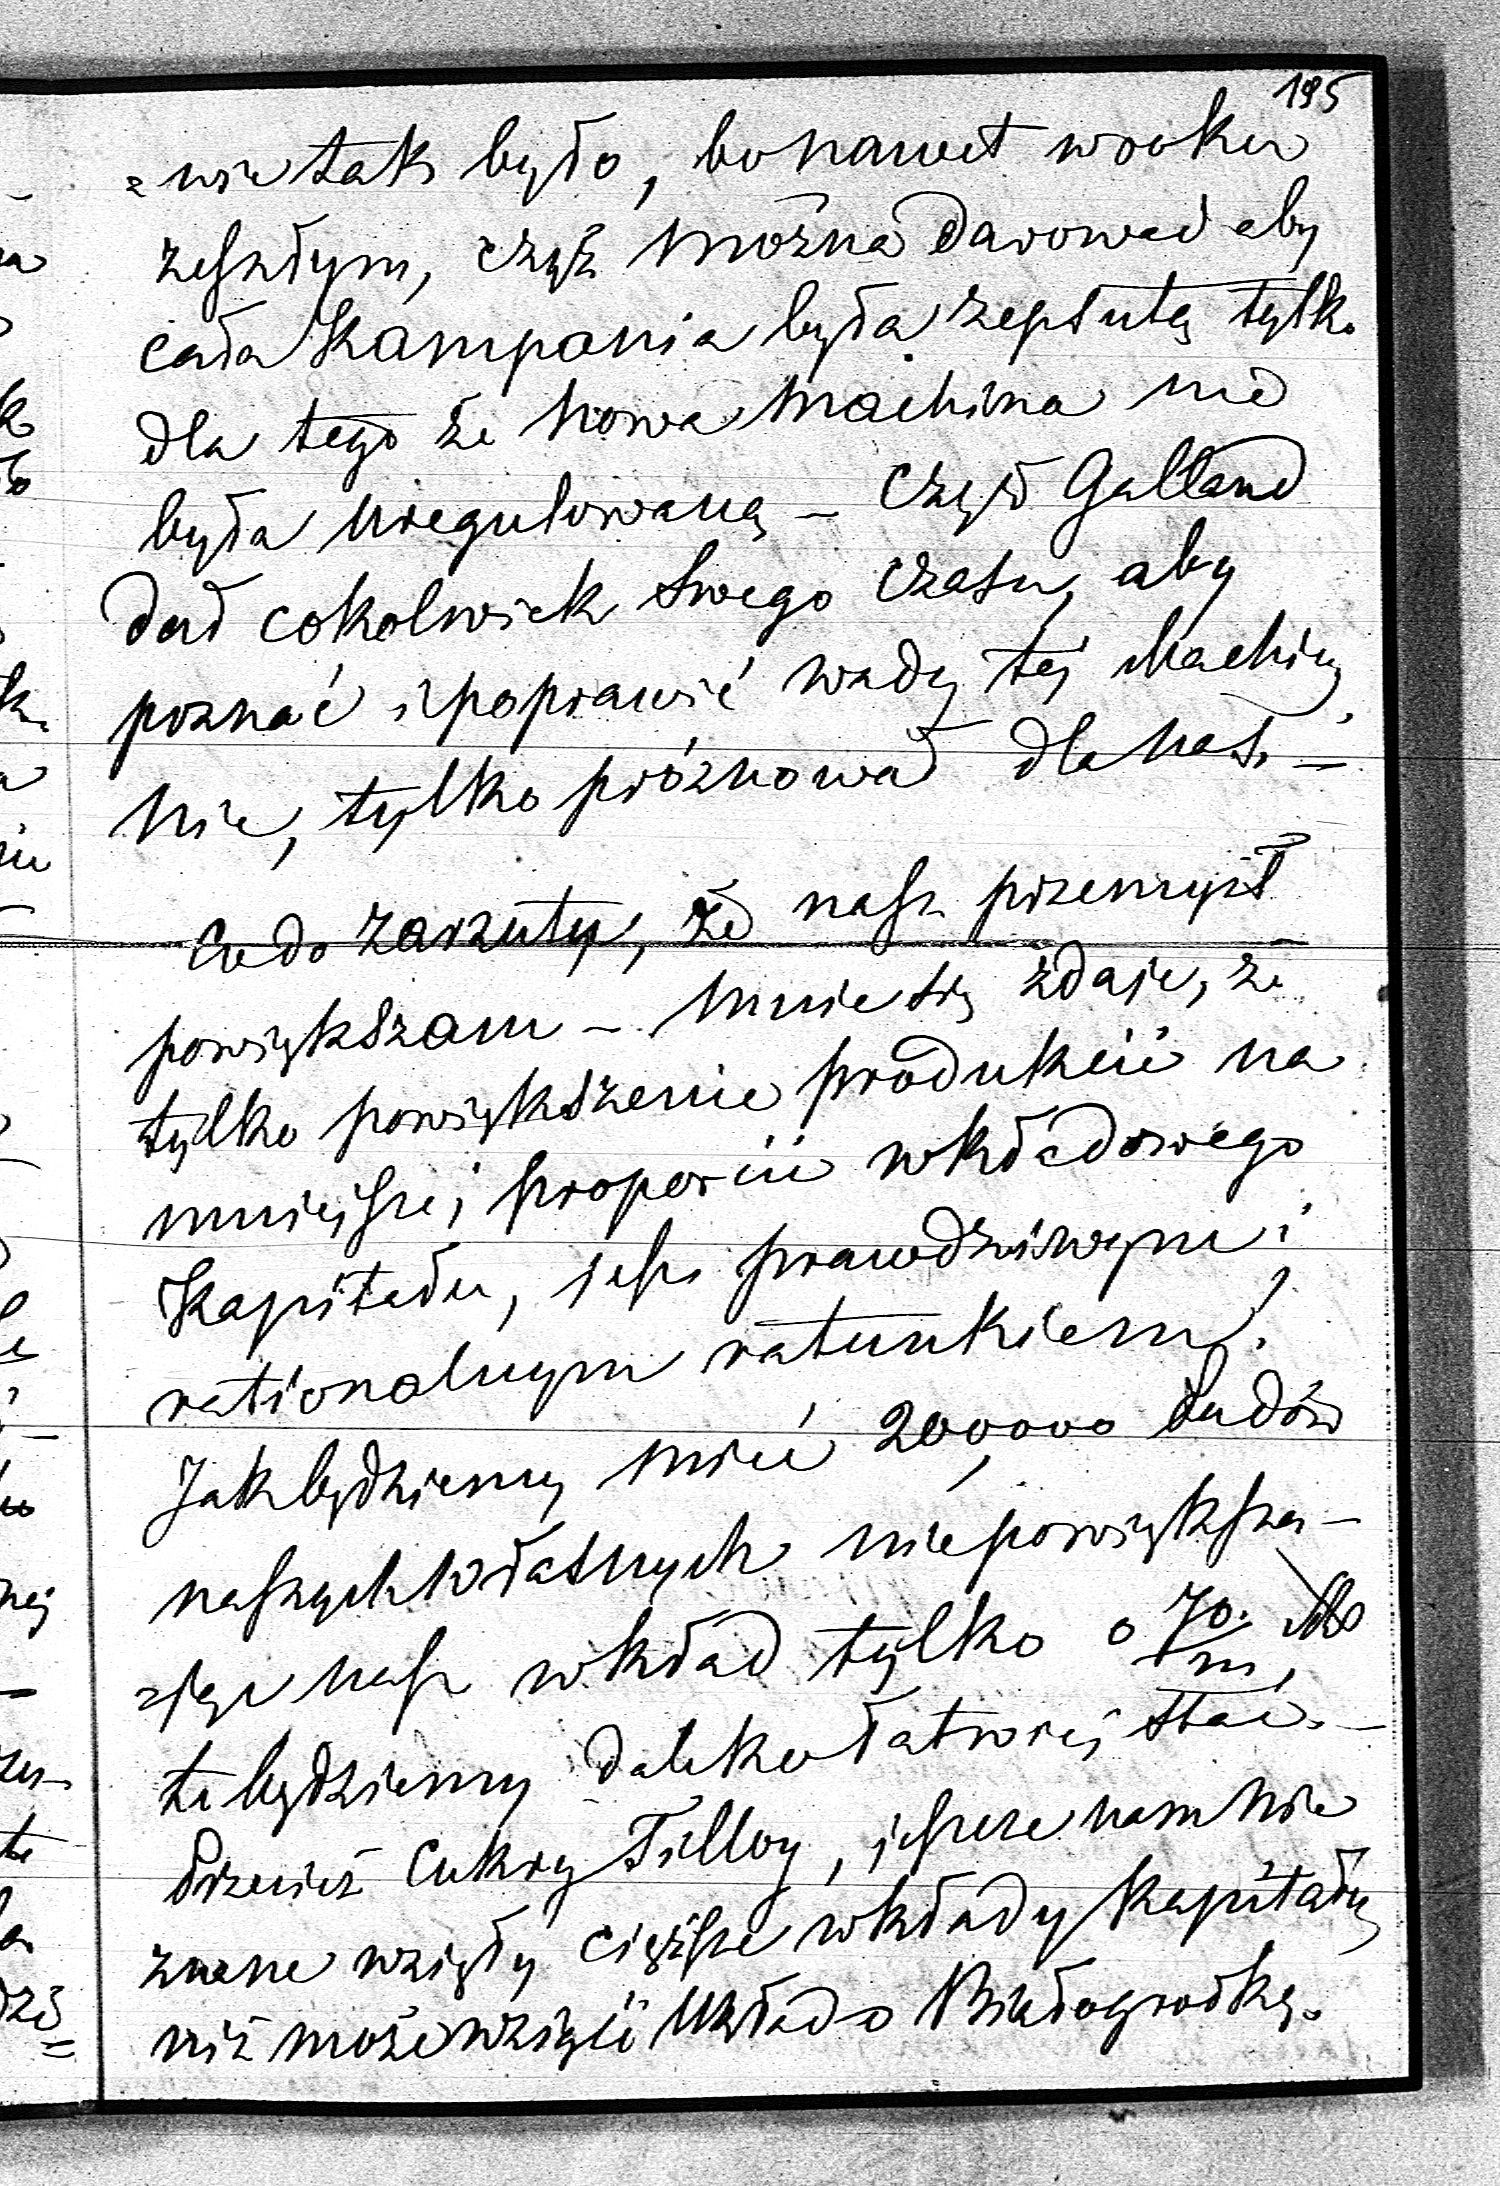 195
= wie tak było, bo nawet w roku
zeszłym, czyż można darować aby
cała Kampania była zepsutą tylko
dla tego że nowa Machina nie
była uregulowaną – Czyż Galland
dał cokolwiek swego czasu, aby
poznać i poprawić wady tej Machiny,
nie, tylko próżnował dla nas. –
Co do zarzuty, że nasz przemysł
powiększam – Mnie się zdaje, że
tylko powiększenie produkcii na
mniejszej proporcii wkładowego
Kapitału, jest prawdziwym i
rationalnym ratunkiem.
Jak będziemy mieć 200,000 Pudów
naszych własnych niepowiększa-
=jąc nasz wkład tylko o 70/m,
to będziemy daleko łatwiej stać. –
Przecież Cukry Tilloy, jeszcze nam nie
znane wzięły cięższe wkłady Kapitału
niż może wziąść Układ o Białogrodkę.